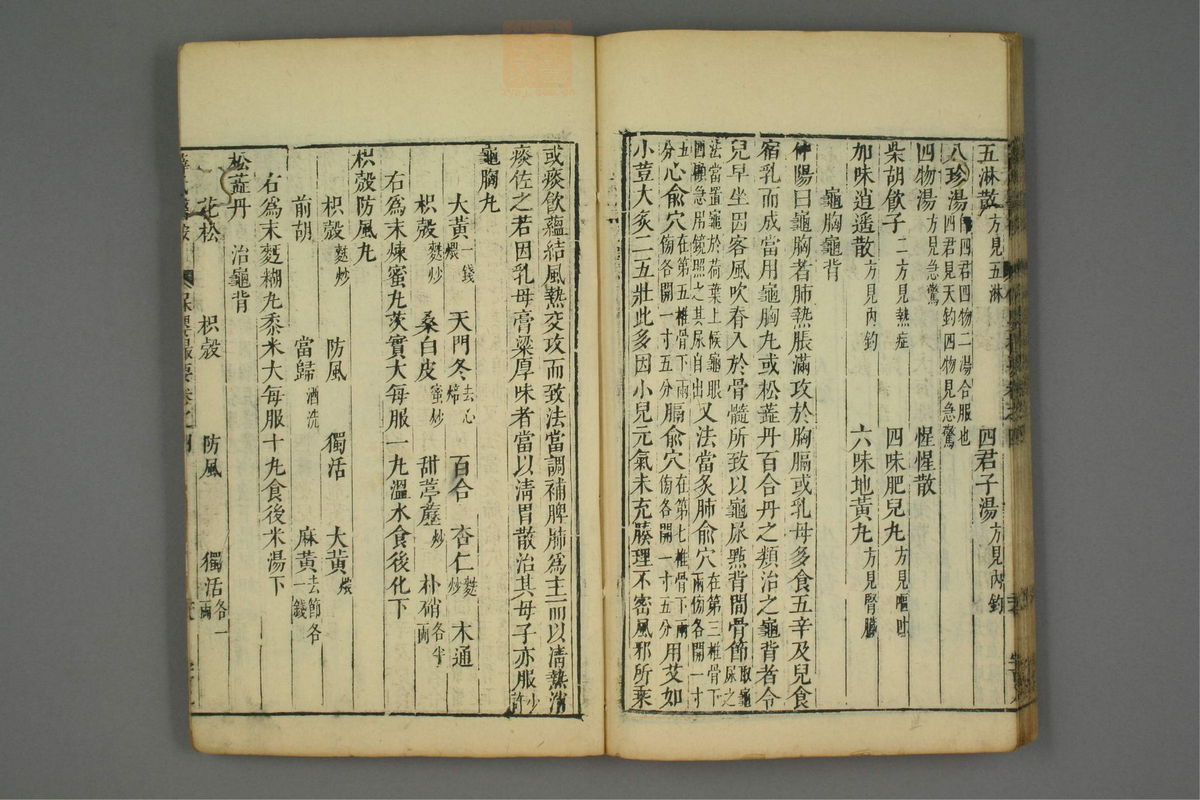 五淋散方見五淋　四君子湯方見內釣
八珍湯即四君四物二湯合服也四君見天釣四物見急驚
四物湯方見急驚　惺惺散
柴胡飲子二方見熱症　四味肥兒丸方見嘔吐
加味逍遙散方見內釣　六味地黃丸方見腎臟
龜胸龜背
仲陽曰龜胸者肺熱脹滿攻於胸膈或乳母多食五辛及兒食
宿乳而成當用龜胸丸或松蘂丹百合丹之類治之龜背者令
兒早坐因客風吹脊入於骨髓所致以龜尿㸃背間骨節取龜尿之
法當置龜於荷葉上候龜眼四顧急吊鏡照之其尿自出又法當灸肺俞穴在第三椎骨下兩傍各開一寸
五分心俞穴在第五椎骨下兩傍各開一寸五分膈俞穴在第七椎骨下兩傍各開一寸五分用艾如
小荳大灸二五壯此多因小兒元氣未充腠理不密風邪所乘
或痰飲蘊結風熱交攻而致法當調補脾肺爲主而以清熱消
痰佐之若因乳母膏粱厚味者當以清胃散治其母子亦服少許
龜胸丸
大黃煨一錢　天門冬去心焙　百合　杏仁麩炒　木通
枳殼麩炒　桑白皮蜜炒　甜葶藶炒　朴硝各半兩
右爲末煉蜜丸茨實大每服一丸溫水食後化下
枳殼防風丸
枳殼麩炒　防風　獨活　大黃煨
前胡　當歸酒洗　麻黃去節各一錢
右爲末麪糊丸黍米大每服十丸食後米湯下
松蘂丹　治龜背
花松　枳殼　防風　獨活各一兩